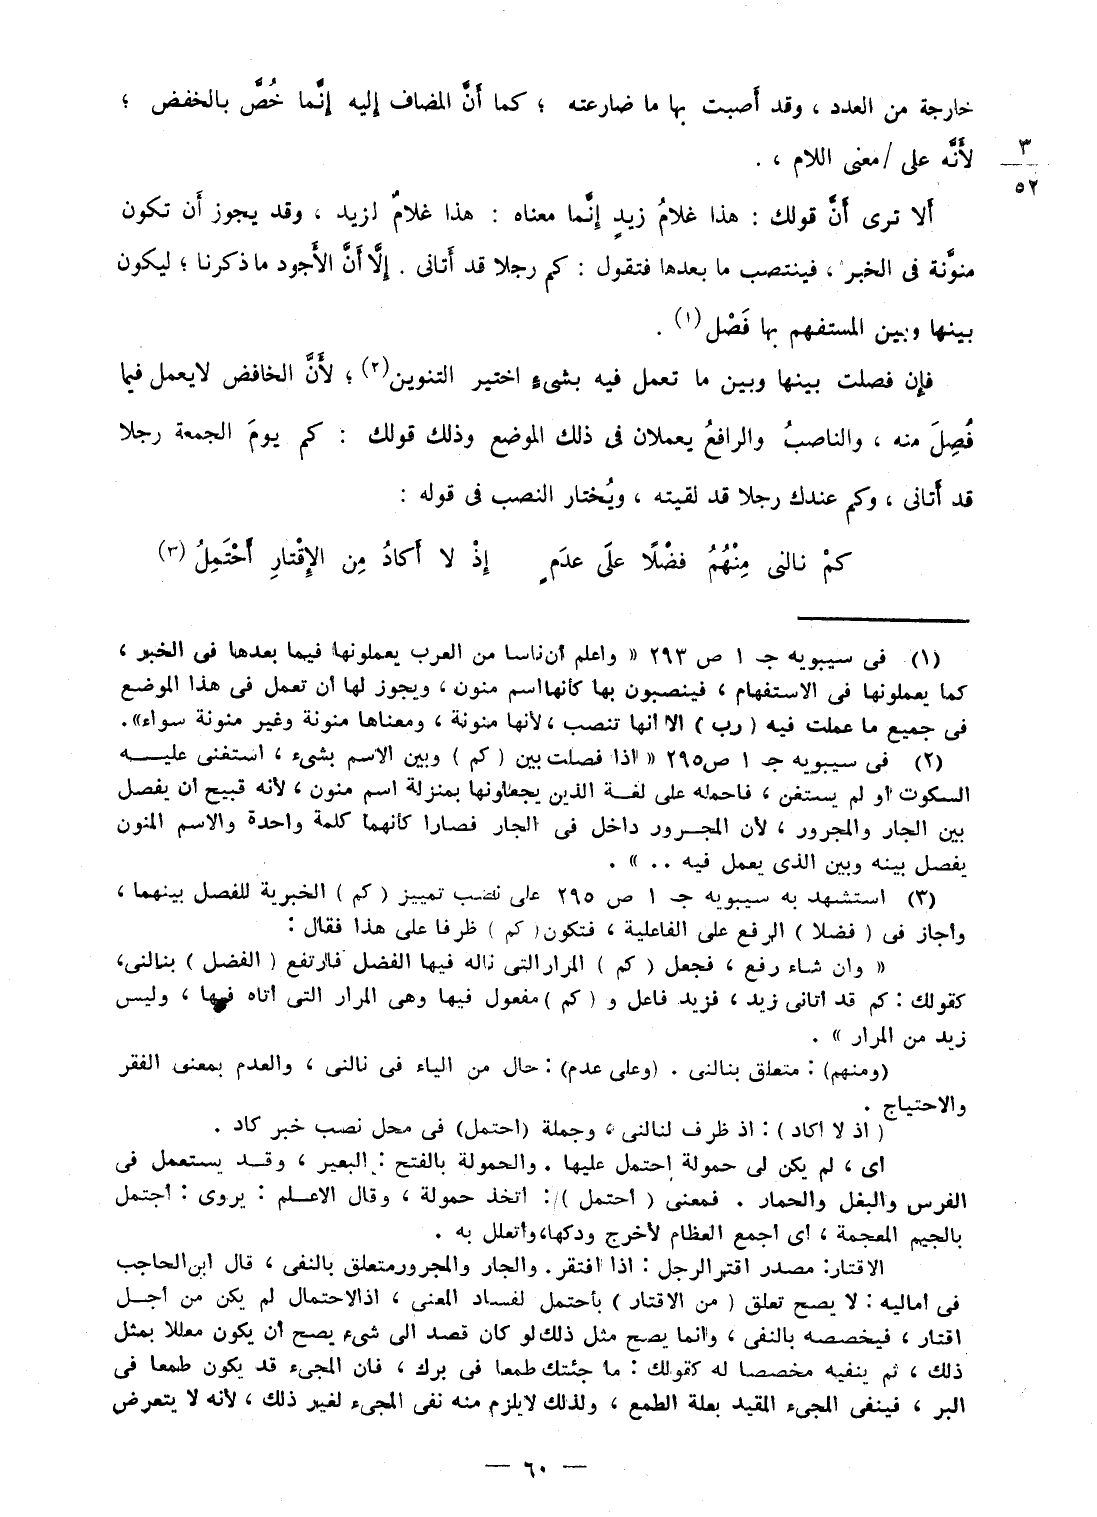 خارجة من العدد ، وقد أَصبت بها ما ضارعته ؛ كما أَنَّ المضاف إليه إنَّما خُصَّ بالخفض ؛
لأَنَّه على /معنى اللام ، .
٣
٥٢
أَلا ترى أَنَّ قولك : هذا غلامُ زيدٍ إنَّما معناه : هذا غلامٌ لزيد ، وقد يجوز أَن تكون
منوَّنة فى الخبر ، فينتصب ما بعدها فتقول : كم رجلا قد أَتانى . إلَّا أَنَّ الأَجود ما ذكرنا ؛ ليكون
بينها وبين المستفهم بها فَصْل(١) .
فإن فصلت بينها وبين ما تعمل فيه بشىءٍ اختير التنوين(٢) ؛ لأَنَّ الخافض لايعمل فيما
فُصِلَ منه ، والناصبُ والرافعُ يعملان فى ذلك الموضع وذلك قولك : كم يومَ الجمعة رجلا
قد أَتانى ، وكم عندك رجلا قد لقيته ، ويُختار النصب فى قوله :
كمْ نالنى مِنْهُمُ فضْلًا علَى عدَمٍ إذْ لا أَكادُ مِن الإقْتارِ أَحْتَمِلُ (٣)
(١) فى سيبويه جـ ١ ص ٢٩٣ « واعلم أن ناسا من العرب يعملونها فيما بعدها فى الخبر ،
كما يعملونها فى الاستفهام ، فينصبون بها كأنها اسم منون ، ويجوز لها ان تعمل فى هذا الموضع
فى جميع ما عملت فيه ( رب ) الا انها تنصب ، لأنها منونة ، ومعناها منونة وغير منونة سواء» .
(٢) فى سيبويه جـ ١ ص٢٩٥ « اذا فصلت بين ( كم ) وبين الاسم بشىء ، استغنى عليـــه
السكوت أو لم يستغن ، فاحمله على لغـة الذين يجعلونها بمنزلة اسم منون ، لأنه قبيح أن يفصل
بين الجار والمجرور ، لأن المجـرور داخل فى الجار فصارا كأنهما كلمة واحدة والاسم المنون
يفصل بينه وبين الذى يعمل فيه .. » .
(٣) استشهد به سيبويه جـ ١ ص ٢٩٥ على نصب تمييز ( كم ) الخبرية للفصل بينهما ،
وأجاز فى ( فضلا ) الرفع على الفاعلية ، فتكون ( كم ) ظرفا على هذا فقال :
« وان شاء رفع ، فجعل ( كم ) المرار التى ناله فيها الفضل فارتفع ( الفضل ) بنالنى،
كقولك : كم قد أتانى زيد ، فزيد فاعل و ( كم ) مفعول فيها وهى المرار التى أتاه فيها ، وليس
زيد من المرار » .
(ومنهم) : متعلق بنالنى . (وعلى عدم) : حال من الياء فى نالنى ، والعدم بمعنى الفقر
والاحتياج .
( اذ لا أكاد ) : اذ ظرف لنالنى ، وجملة (احتمل) فى محل نصب خبر كاد .
أى ، لم يكن لى حمولة احتمل عليها . والحمولة بالفتح : البعير ، وقـد يستعمل فى
الفرس والبغل والحمار . فمعنى ( احتمل ) : اتخذ حمولة ، وقال الاعـلم : يروى : أجتمل
بالجيم المعجمة ، أى أجمع العظام لأخرج ودكها، وأتعلل به .
الاقتار: مصدر اقتر الرجل : اذا افتقر . والجار والمجرور متعلق بالنفى ، قال ابن الحاجب
فى أماليه : لا يصح تعلق ( من الاقتار ) بأحتمل لفساد المعنى ، اذ الاحتمال لم يكن من أجـل
اقتار ، فيخصصه بالنفى ، وانما يصح مثل ذلك لو كان قصد الى شىء يصح أن يكون معللا بمثل
ذلك ، ثم ينفيه مخصصا له كقولك : ما جئتك طمعا فى برك ، فان المجىء قد يكون طمعا فى
البر ، فينفى المجىء المقيد بعلة الطمع ، ولذلك لايلزم منه نفى المجىء لغير ذلك ، لأنه لا يتعرض
— ٦٠ —